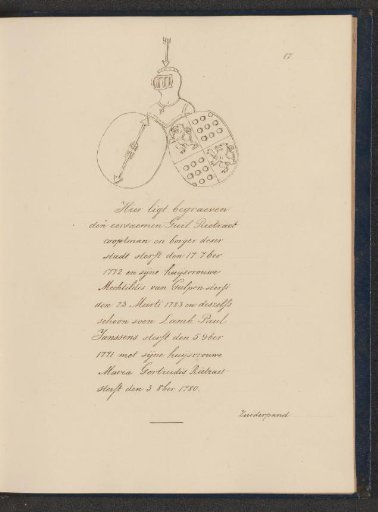 17
Hier ligt begraeven
den eersaemen Guil Rietraet
coopman en borger deser
stadt sterft den 17 7ber
1772 en syne huysvrouwe
Mechtildis van Gulpen sterft
den 23 Meerti 1783 en deszelfs
schoon soen Lamb. Paul
Janssens sterft den 5 9ber
1771 met syne huysvrouwe
Maria Gertrudis Rietraet
sterft den 3 8ber 1780.
Zuiderpand